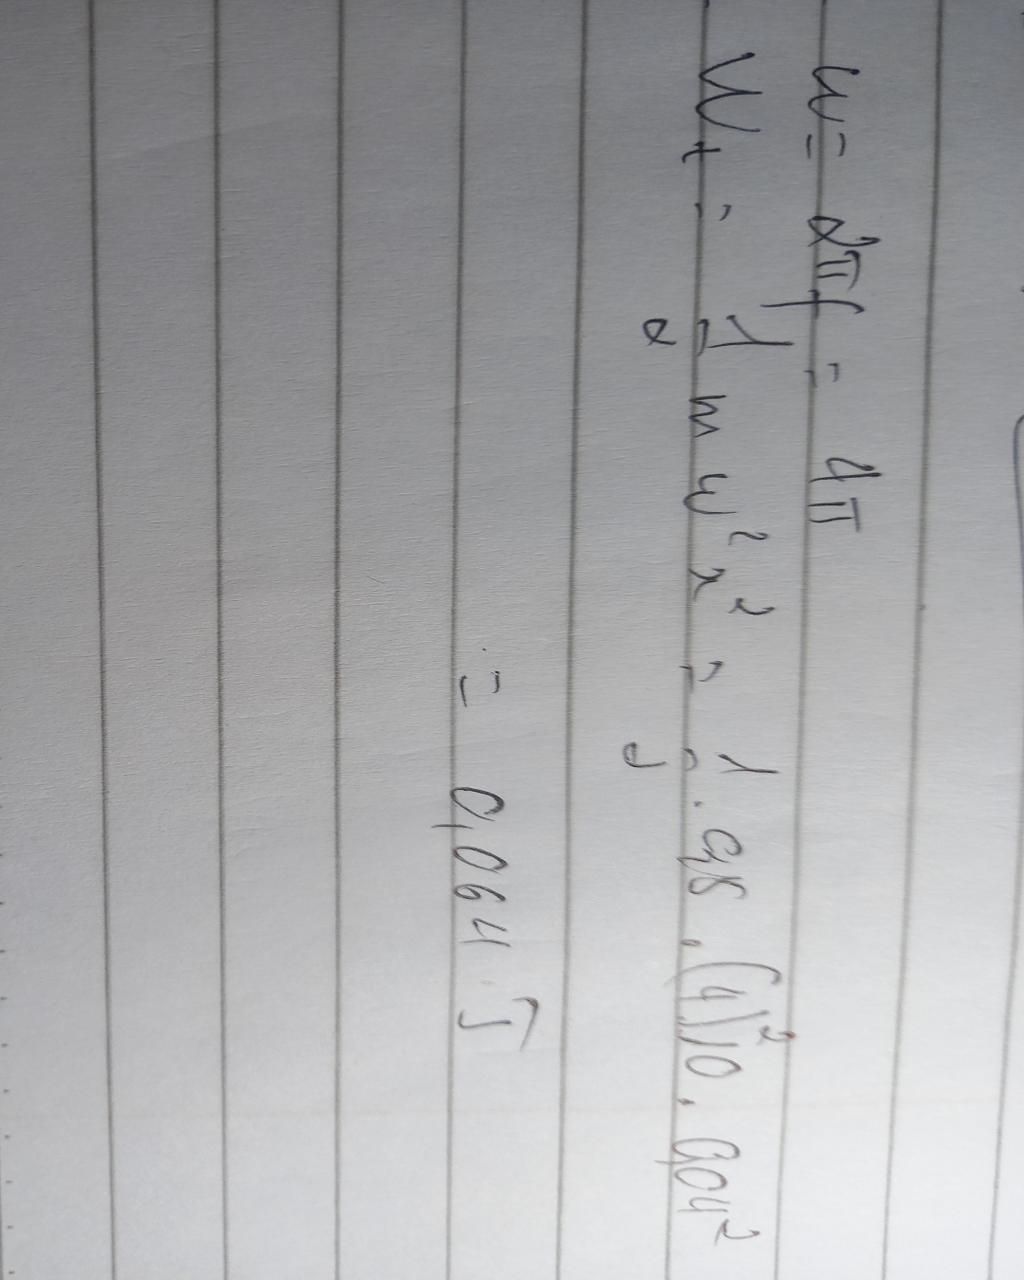 ω = 2πf = 4π
Wt = 1/2 m ω² x² = 1/2 . 0,8 . (4)² 10 . 0,04²
= 0,064 J